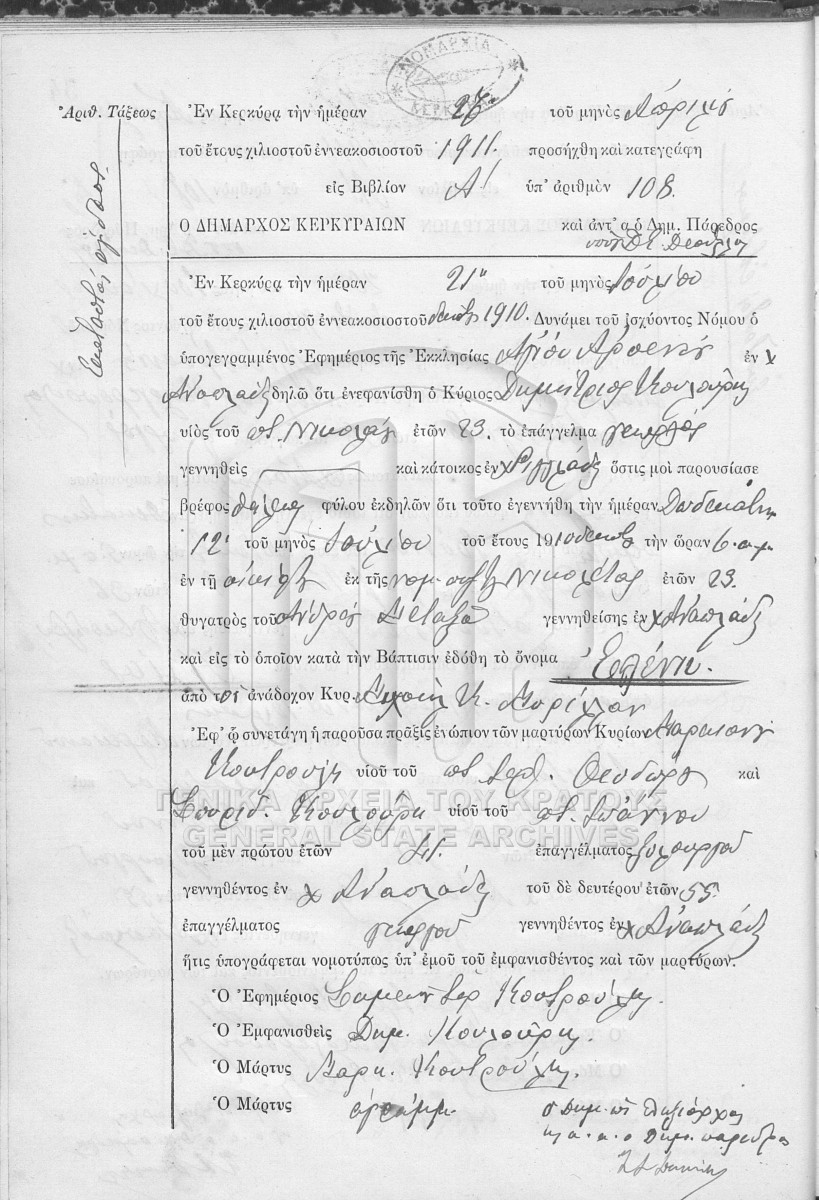 ΝΟΜΑΡΧΙΑ
ΚΕΡΚΥΡΑΣ
Ἀριθ. Τάξεως
Ἐν Κερκύρᾳ τὴν ἡμέραν τοῦ μηνὸς
τοῦ ἔτους χιλιοστοῦ ἐννεακοσιοστοῦ 1911. προσήχθη καὶ κατεγράφη
εἰς Βιβλίον Α' ὑπ' ἀριθμὸν 108.
Ο ΔΗΜΑΡΧΟΣ ΚΕΡΚΥΡΑΙΩΝ καὶ ἀντ' α ὁ Δημ. Πάρεδρος
Ἐν Κερκύρᾳ τὴν ἡμέραν 21 τοῦ μηνὸς Ἰουλίου
τοῦ ἔτους χιλιοστοῦ ἐννεακοσιοστοῦ δεκάτου 1910. Δυνάμει τοῦ ἰσχύοντος Νόμου ὁ
ὑπογεγραμμένος Ἐφημέριος τῆς Ἐκκλησίας Ἁγίου Ἀρσενίου ἐν χ
Ἀναπλάδες δηλῶ ὅτι ἐνεφανίσθη ὁ Κύριος Δημήτριος Κουλούρης
υἱὸς τοῦ ποτ. Νικολάου ἐτῶν 23. τὸ ἐπάγγελμα γεωργὸς
γεννηθεὶς καὶ κάτοικος ἐν χ Ἀναπλάδες ὅστις μοὶ παρουσίασε
βρέφος θήλεος φύλου ἐκδηλῶν ὅτι τοῦτο ἐγεννήθη τὴν ἡμέραν Δωδεκάτην
12 τοῦ μηνὸς Ἰουλίου τοῦ ἔτους 1910 δεκάτου τὴν ὥραν 6 π.μ.
ἐν τῇ οἰκίᾳ ἐκ τῆς νομ. συζ. Νικολέτας ἐτῶν 23.
θυγατρὸς τοῦ Ἀνδρέα Μεταξᾶ γεννηθείσης ἐν χ Ἀναπλάδες
καὶ εἰς τὸ ὁποῖον κατὰ τὴν Βάπτισιν ἐδόθη τὸ ὄνομα Ἑλένη.
ἀπὸ τὸν ἀνάδοχον Κυρ. Μιχαὴλ Κ.
Ἐφ' ᾧ συνετάγη ἡ παροῦσα πρᾶξις ἐνώπιον τῶν μαρτύρων Κυρίων
Κουτρούλη υἱοῦ τοῦ ποτ. Ἱερ. Θεοδώρου καὶ
Σπυρίδ. Κουλούρη υἱοῦ τοῦ ποτ. Ἰωάννου
ΓΕΝΙΚΑ ΑΡΧΕΙΑ ΤΟΥ ΚΡΑΤΟΥΣ
GENERAL STATE ARCHIVES
τοῦ μὲν πρώτου ἐτῶν ἐπαγγέλματος ξυλουργοῦ
γεννηθέντος ἐν χ Ἀναπλάδες τοῦ δὲ δευτέρου ἐτῶν 55.
ἐπαγγέλματος γεωργοῦ γεννηθέντος ἐν χ Ἀναπλάδες
ἥτις ὑπογράφεται νομοτύπως ὑπ' ἐμοῦ τοῦ ἐμφανισθέντος καὶ τῶν μαρτύρων.
Ὁ Ἐφημέριος Ἱερ. Κουτρούλης.
Ὁ Ἐμφανισθεὶς Δημ. Κουλούρης.
Ὁ Μάρτυς Μαρκ. Κουτρούλης.
Ὁ Μάρτυς ἀγράμμ. ὁ Δημ. ὡς Ληξίαρχος
κ. α. α. ὁ Δημ. πάρεδρος